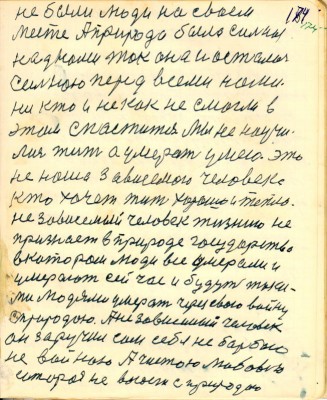 184
174
не были люди на своем
месте А природа была сильны
над номи ток она и осталас
сельною перед всеми номи.
ни кто и не как не смогли в
этом спастится Мы не научи-
лися жит а умерат умею. Это
не наша зависемого человека
кто хочет жит хорошо и тепло.
независемый человек жизнию не
признает в природе государство
в котором люди все умерали и
умерают сей час и будут таки-
ми людями умерат через свою войну
с природою. А независимый человек
он заручил сам себя не борбою
не войною А чистою любовию
которая не воюет с природою